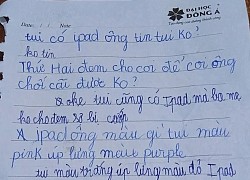 ĐẠI HỌC
ĐÔNG Á
Date
tui có ipad ông tin tui ko?
ko tin
Thứ Hai đem cho coi để coi ông
chơi cái được ko?
oke tui cũng có Ipad mà ba mẹ
ko cho đem sợ bị cướp
Ipad ông màu gì tui màu
pink úp lưng màu purple
tui màu trắng úp lưng màu đỏ Ipad